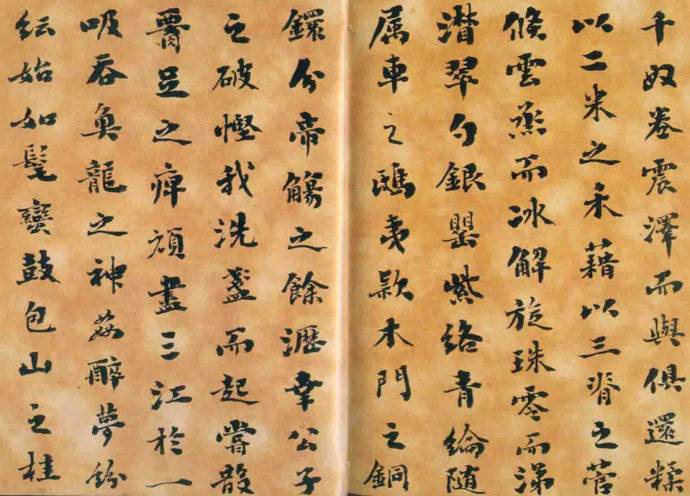 千奴卷震澤而與俱還糅
以二米之禾藉以三脊之菅
倏雲烝而冰解旋珠零而涕
潸翠勺銀罌紫絡青綸隨
属車之鴟夷款木門之銅
鐶分帝觴之餘瀝幸公子
之破慳我洗盞而起嘗散
腰足之痺頑盡三江於一
吸吞魚龍之神姦醉夢紛
紜始如髦蠻鼓包山之桂